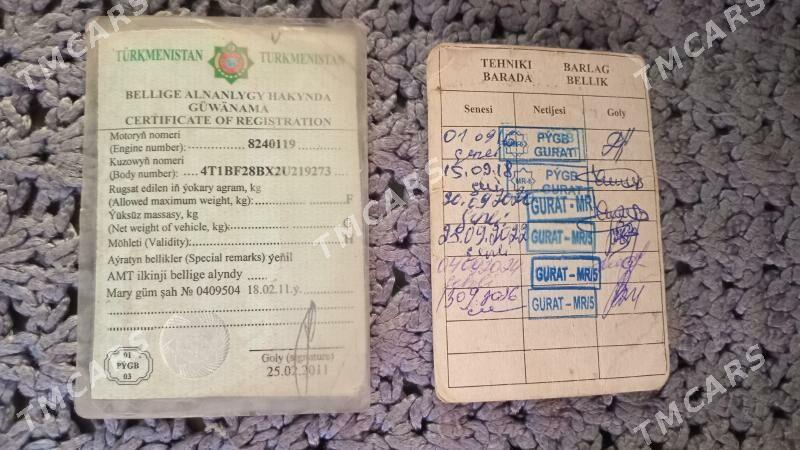 TÜRKMENISTAN TURKMENISTAN
BELLIGE ALNANLYGY HAKYNDA
GÜWÄNAMA
CERTIFICATE OF REGISTRATION
Motoryň nomeri
(Engine number): 8240119
Kuzowyň nomeri
(Body number): 4T1BF28BX2U219273
Rugsat edilen iň ýokary agram, kg
(Allowed maximum weight, kg) F
Ýüksüz massasy, kg
(Net weight of vehicle, kg) G
Möhleti (Validity): H
Aýratyn bellikler (Special remarks) ýeňil
AMT ilkinji bellige alyndy
Mary güm şah № 0409504 18.02.11ý.
01
PÝGB
03
Goly (signature)
25.02.2011
TEHNIKI BARLAG
BARADA BELLIK
Senesi Netijesi Goly
01.09
PÝGB
GURAT
15.09.18
PÝGB
GURAT
GURAT - MR
23.09.2022
GURAT - MR/5
GURAT - MR/5
GURAT - MR/5
TMCARS
TMCARS
TMCARS
TMCARS
TMCARS
TMCARS
TMCARS